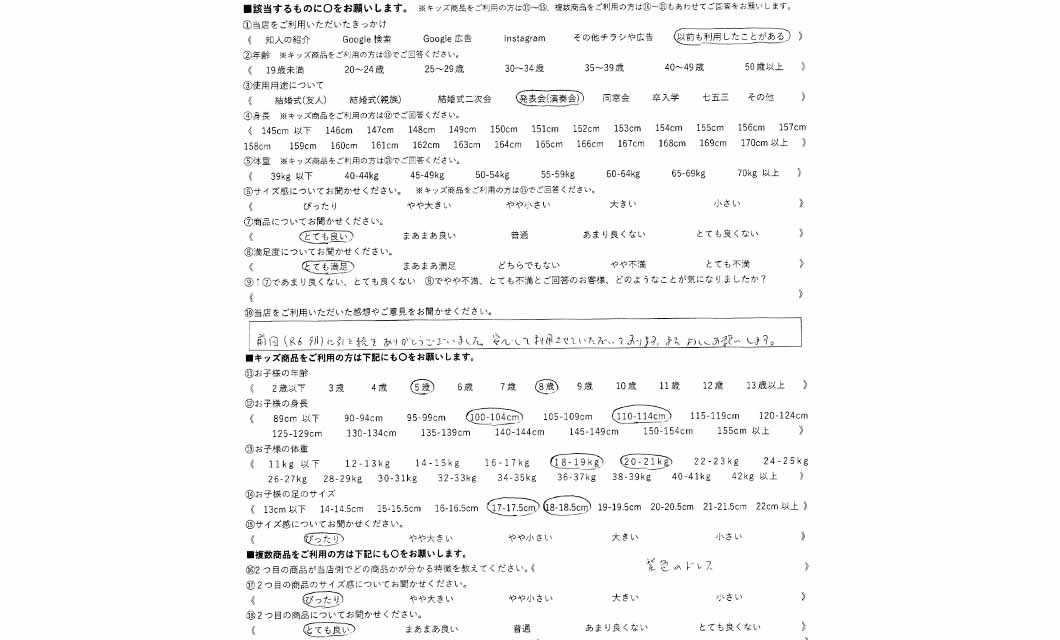 ■該当するものに〇をお願いします。 ※キッズ商品をご利用の方は⑪〜⑮、複数商品をご利用の方は⑯〜⑱もあわせてご回答をお願いします。
①当店をご利用いただいたきっかけ
《 知人の紹介 Google 検索 Google 広告 Instagram その他チラシや広告 以前も利用したことがある 》
②年齢 ※キッズ商品をご利用の方は⑪でご回答ください。
《 19歳未満 20〜24歳 25〜29歳 30〜34歳 35〜39歳 40〜49歳 50歳以上 》
③使用用途について
《 結婚式(友人) 結婚式(親族) 結婚式二次会 発表会(演奏会) 同窓会 卒入学 七五三 その他 》
④身長 ※キッズ商品をご利用の方は⑫でご回答ください。
《 145cm 以下 146cm 147cm 148cm 149cm 150cm 151cm 152cm 153cm 154cm 155cm 156cm 157cm
158cm 159cm 160cm 161cm 162cm 163cm 164cm 165cm 166cm 167cm 168cm 169cm 170cm 以上 》
⑤体重 ※キッズ商品をご利用の方は⑬でご回答ください。
《 39kg 以下 40-44kg 45-49kg 50-54kg 55-59kg 60-64kg 65-69kg 70kg 以上 》
⑥サイズ感についてお聞かせください。 ※キッズ商品をご利用の方は⑮でご回答ください。
《 ぴったり やや大きい やや小さい 大きい 小さい 》
⑦商品についてお聞かせください。
《 とても良い まあまあ良い 普通 あまり良くない とても良くない 》
⑧満足度についてお聞かせください。
《 とても満足 まあまあ満足 どちらでもない やや不満 とても不満 》
⑨↑⑦であまり良くない、とても良くない ⑧でやや不満、とても不満とご回答のお客様、どのようなことが気になりましたか？
《 》
⑩当店をご利用いただいた感想やご意見をお聞かせください。
前回(R6 9月)に引き続きありがとうございました。安心して利用させていただいております。またよろしくお願いします。
■キッズ商品をご利用の方は下記にも〇をお願いします。
⑪お子様の年齢
《 2歳以下 3歳 4歳 5歳 6歳 7歳 8歳 9歳 10歳 11歳 12歳 13歳以上 》
⑫お子様の身長
《 89cm 以下 90-94cm 95-99cm 100-104cm 105-109cm 110-114cm 115-119cm 120-124cm
125-129cm 130-134cm 135-139cm 140-144cm 145-149cm 150-154cm 155cm 以上 》
⑬お子様の体重
《 11kg 以下 12-13kg 14-15kg 16-17kg 18-19kg 20-21kg 22-23kg 24-25kg
26-27kg 28-29kg 30-31kg 32-33kg 34-35kg 36-37kg 38-39kg 40-41kg 42kg 以上 》
⑭お子様の足のサイズ
《 13cm以下 14-14.5cm 15-15.5cm 16-16.5cm 17-17.5cm 18-18.5cm 19-19.5cm 20-20.5cm 21-21.5cm 22cm以上 》
⑮サイズ感についてお聞かせください。
《 ぴったり やや大きい やや小さい 大きい 小さい 》
■複数商品をご利用の方は下記にも〇をお願いします。
⑯2つ目の商品が当店側でどの商品かが分かる特徴を教えてください。《 紫色のドレス 》
⑰2つ目の商品のサイズ感についてお聞かせください。
《 ぴったり やや大きい やや小さい 大きい 小さい 》
⑱2つ目の商品についてお聞かせください。
《 とても良い まあまあ良い 普通 あまり良くない とても良くない 》